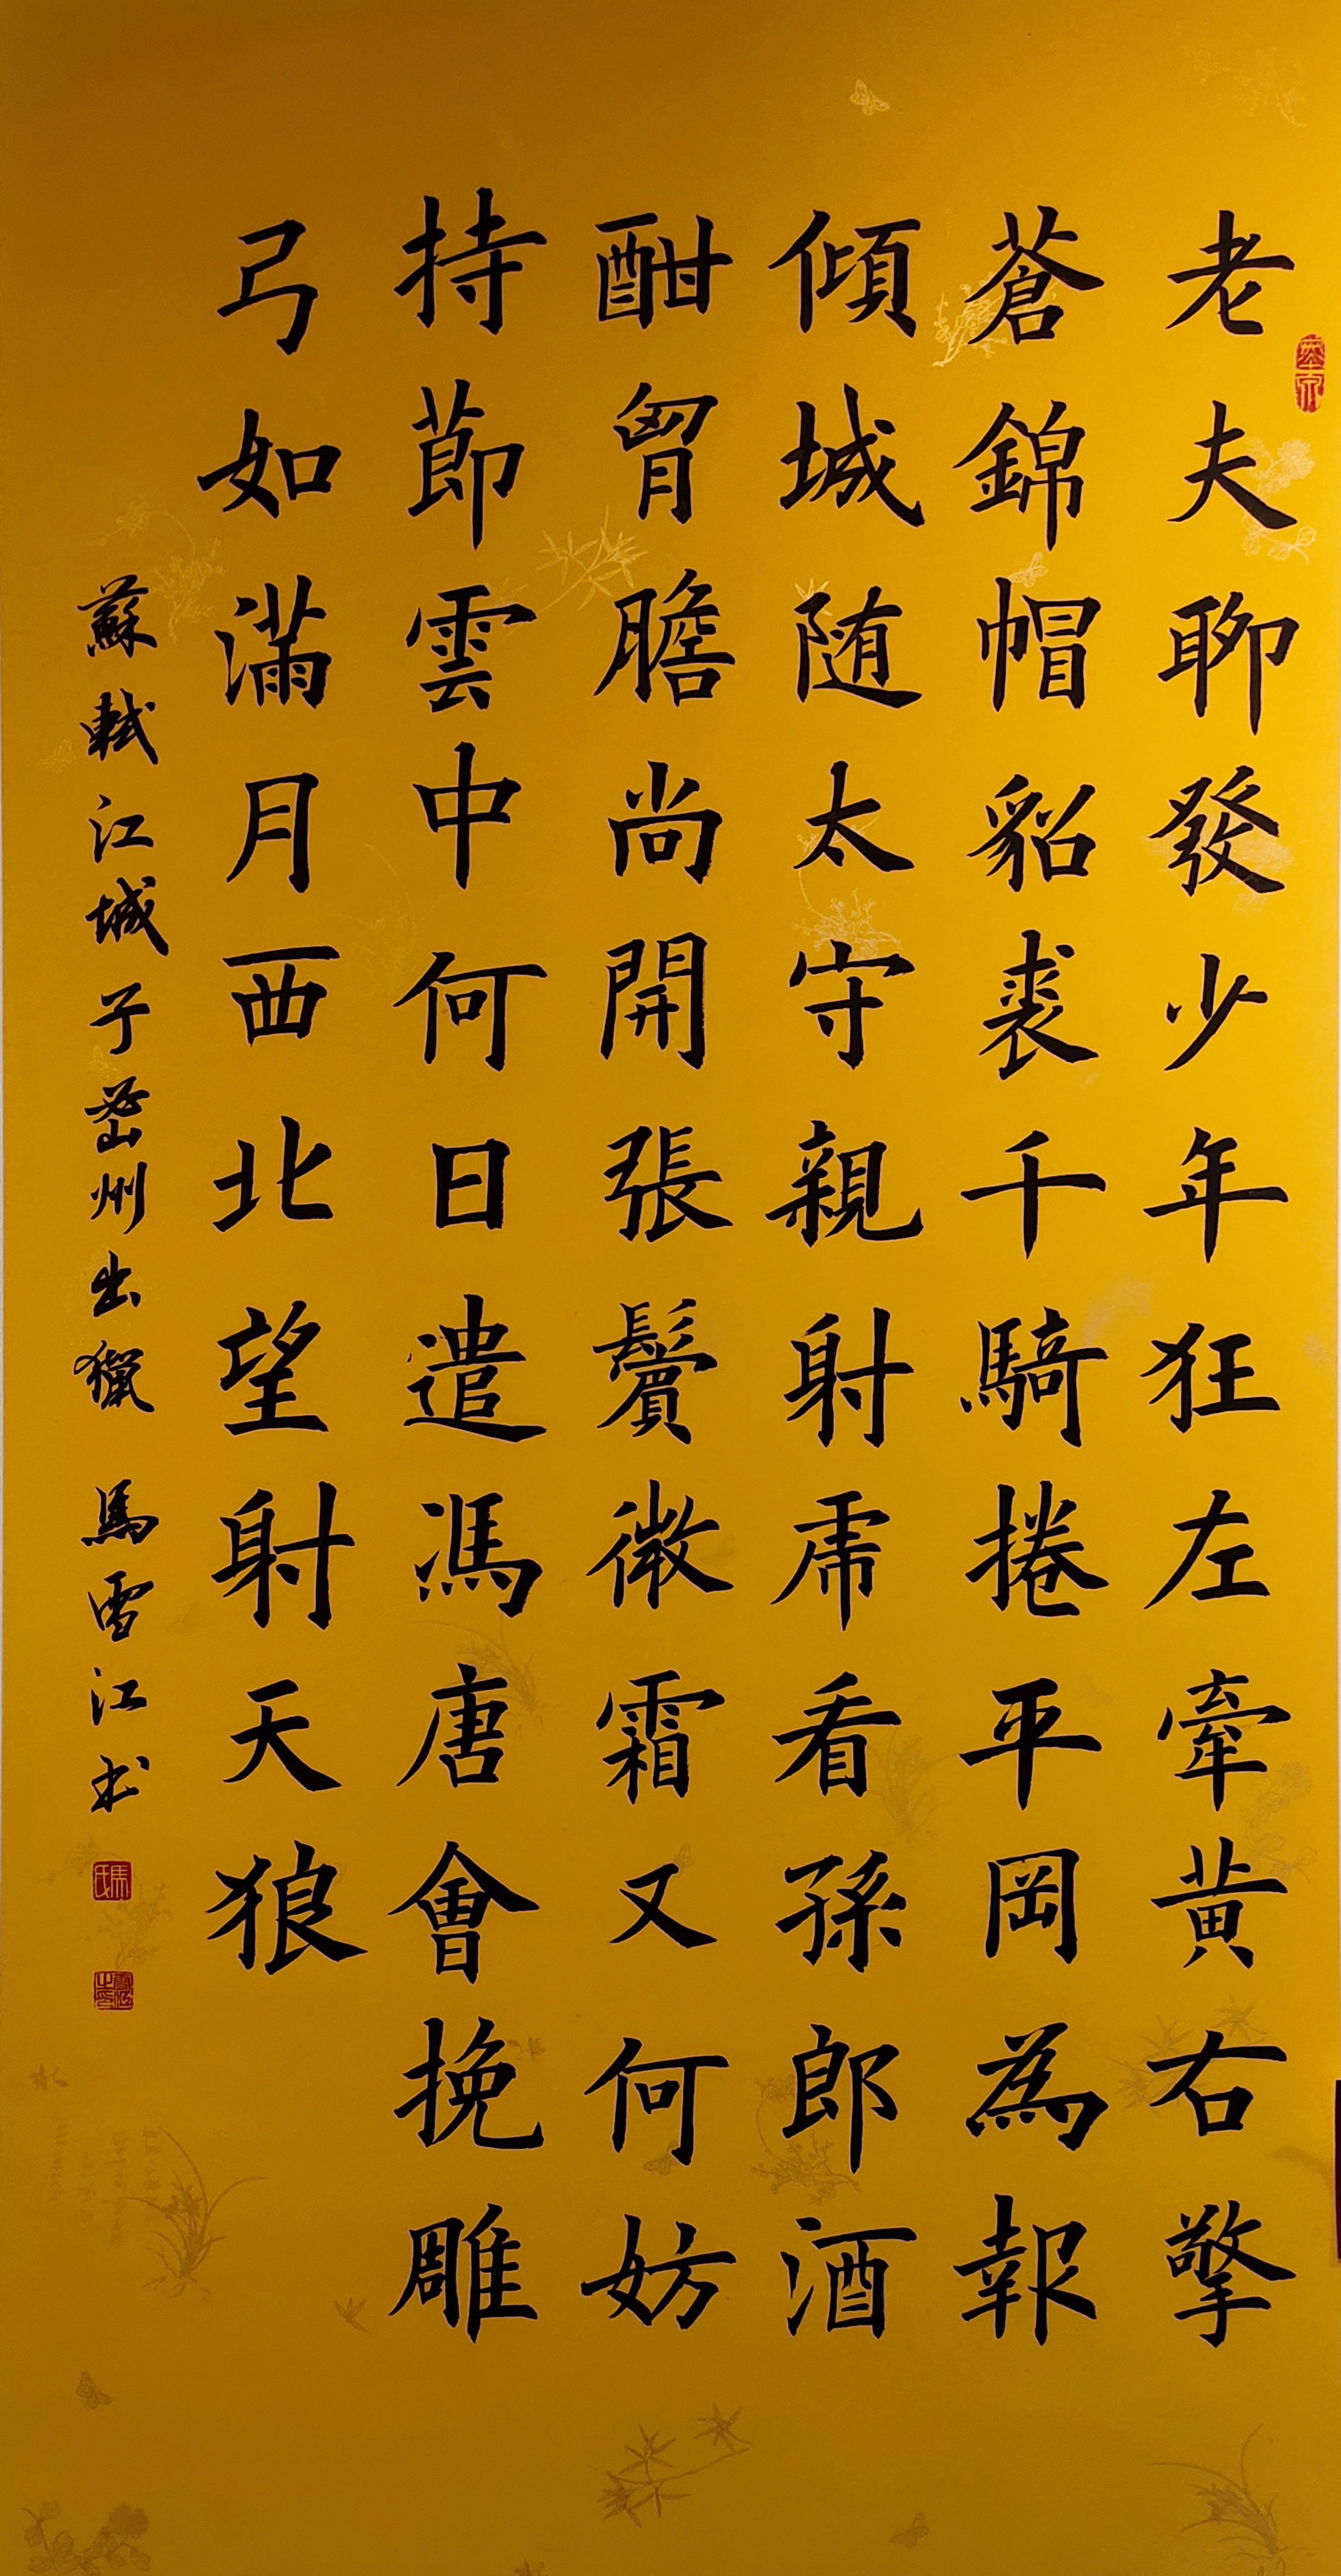 老夫聊發少年狂左牽黄右擎
蒼錦帽貂裘千騎捲平岡為報
傾城随太守親射虎看孫郎酒
酣胷膽尚開張鬢微霜又何妨
持莭雲中何日遣馮唐會挽雕
弓如滿月西北望射天狼
蘇軾江城子密州出獵 馬雪江书
馬氏